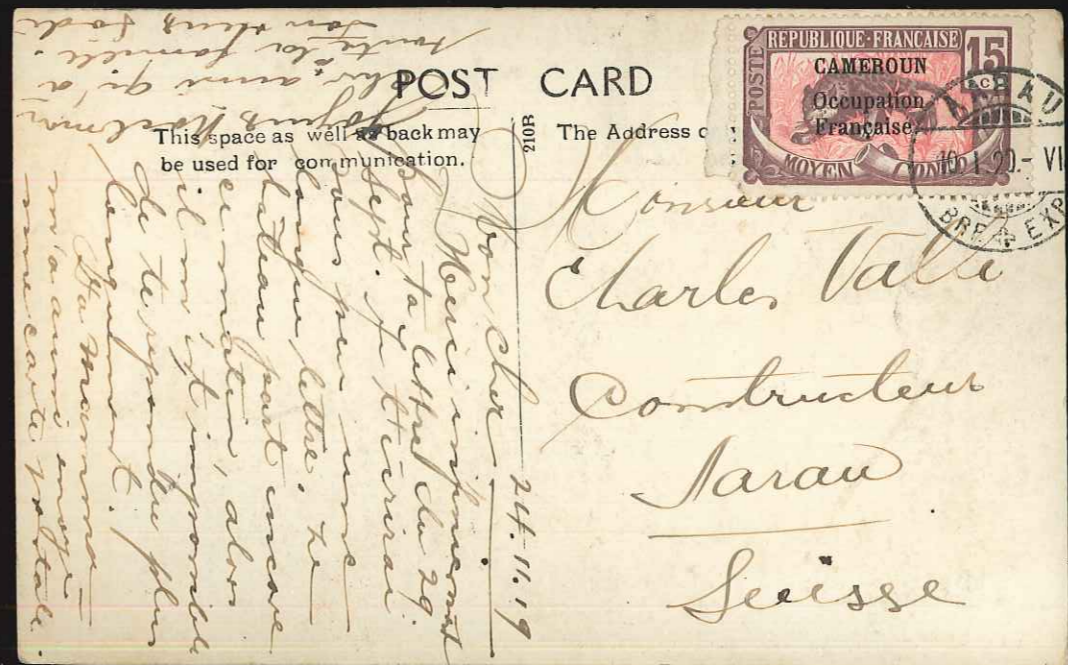 POST CARD
This space as well as back may
be used for communication.
The Address o
210B
POSTE
REPUBLIQUE·FRANÇAISE
15
CAMEROUN
Occupation
Française
MOYEN CONGO
AARAU
10. I. 20.– VI
BRF EXP
Monsieur
Charles Vallé
Constructeur
Aarau
Suisse
24.11.19
Mon cher
Merci infiniment
pour ta lettre du 29
sept. je t'écrirai
sous peu une
longue lettre. Le
bateau part encore
ce matin, alors
il m'est impossible
de te répondre plus
longuement.
Ta maman
m'a aussi envoyé
une carte postale.
Joyeux Noël mon
cher ainsi qu'à
toute la famille.
Ton vieux